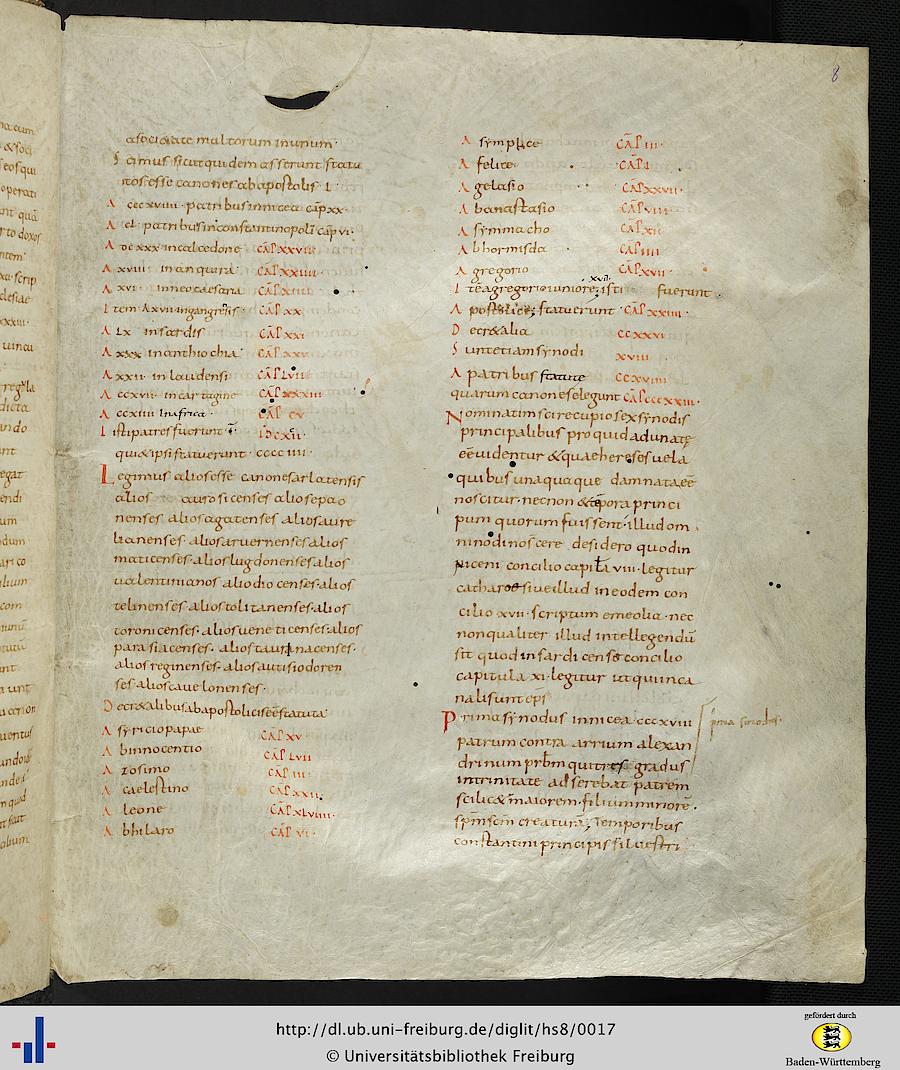 8
asociate multorum inunum·
Scimus sicut quidem asserunt statu
tos esse canones ab apostolis · L ·
A cccxviii · patribus in nicea cap̄ xx·
A cl· patribus in constantinopoli cap̄ vi·
A dcxxx in calcedone CAP̄ XXVII
A xviii · in anquira · CAP̄ XXIIII
A xvi · in neocaesaria CAP̄
Item A xvii in gangrensis CAP̄ XX
A LX · in sardis CAP̄ XXI
A xxx in anthiochia CAP̄ XXV
A xxii · in laudensi CAP̄ LVII
A ccxvii · in cartagine CAP̄ XXXIII
A ccxiiii · in africa · CAP̄ CV
Isti patres fuerunt ī · IDCXII·
qui & ipsi statuerunt · cccc iiii ·
Legimus alios esse canones arlatensis
alios aurosicenses alios epao
nenses alios agatenses alios aure
lianenses · alios aruernenses alios
maticenses · alios lugdonenses alios
ualentinianos alio diocenses · alios
telinenses · alios tolitanenses · alios
toronicenses · alios ueneticenses · alios
parasiacenses · alios taurinacenses ·
alios reginenses · alios autisiodoren
ses · alios cauelonenses ·
Decr&alibus ab apostolici se ē statuta
A syricio papae CAP̄ XV
A binnocentio CAP̄ LVII
A zosimo CAP̄ III
A caelestino CAP̄ XXII·
A leone CAP̄ XLVIIII·
A bhilaro CAP̄ VI·
A symplice CAP̄ III·
A felice CAP̄ I
A gelasio CAP̄ XXVII·
A banastasio CAP̄ VIII·
A symmacho CAP̄ XII
A bhormisda CAP̄ IIII
A gregorio CAP̄ XVII·
Ite a gregorio iuniore · xvii · isti fuerunt ·
Apostolice; statuerunt · CAP̄ XXIIII·
Decr&alia CCXXVI·
Sunt etiam synodi XVIII·
A patribus statute CCXVIII
quarum canones elegunt CAP̄ CCCXXIII·
Nominatim sci recupio sex synodis
principalibus pro quid adunatę
eē uidentur & quae hereses uel a
quibus unaquaque damnata eē
noscitur · necnon & tēpora princi
pum quorum fuissent · illud om
nino dinoscere desidero quod in
niceni concilio capitła viii · legitur
catharos siue illud in eodem con
cilio xvii · scriptum emeolia · nec
non qualiter illud intellegendū
sit quod in sardi cense concilio
capitula xi · legitur ut qui inca
nali sunt epī
Prima synodus in nicea cccxviii
prima sinodus·
patrum contra arrium alexan
drinum prbm qui tres gradus
in trinitate adserebat patrem
scilic& maiorem · filium minorē ·
spm scm creaturā; Temporibus
constantini principis silvestri
http://dl.ub.uni-freiburg.de/diglit/hs8/0017
© Universitätsbibliothek Freiburg
gefördert durch
Baden-Württemberg